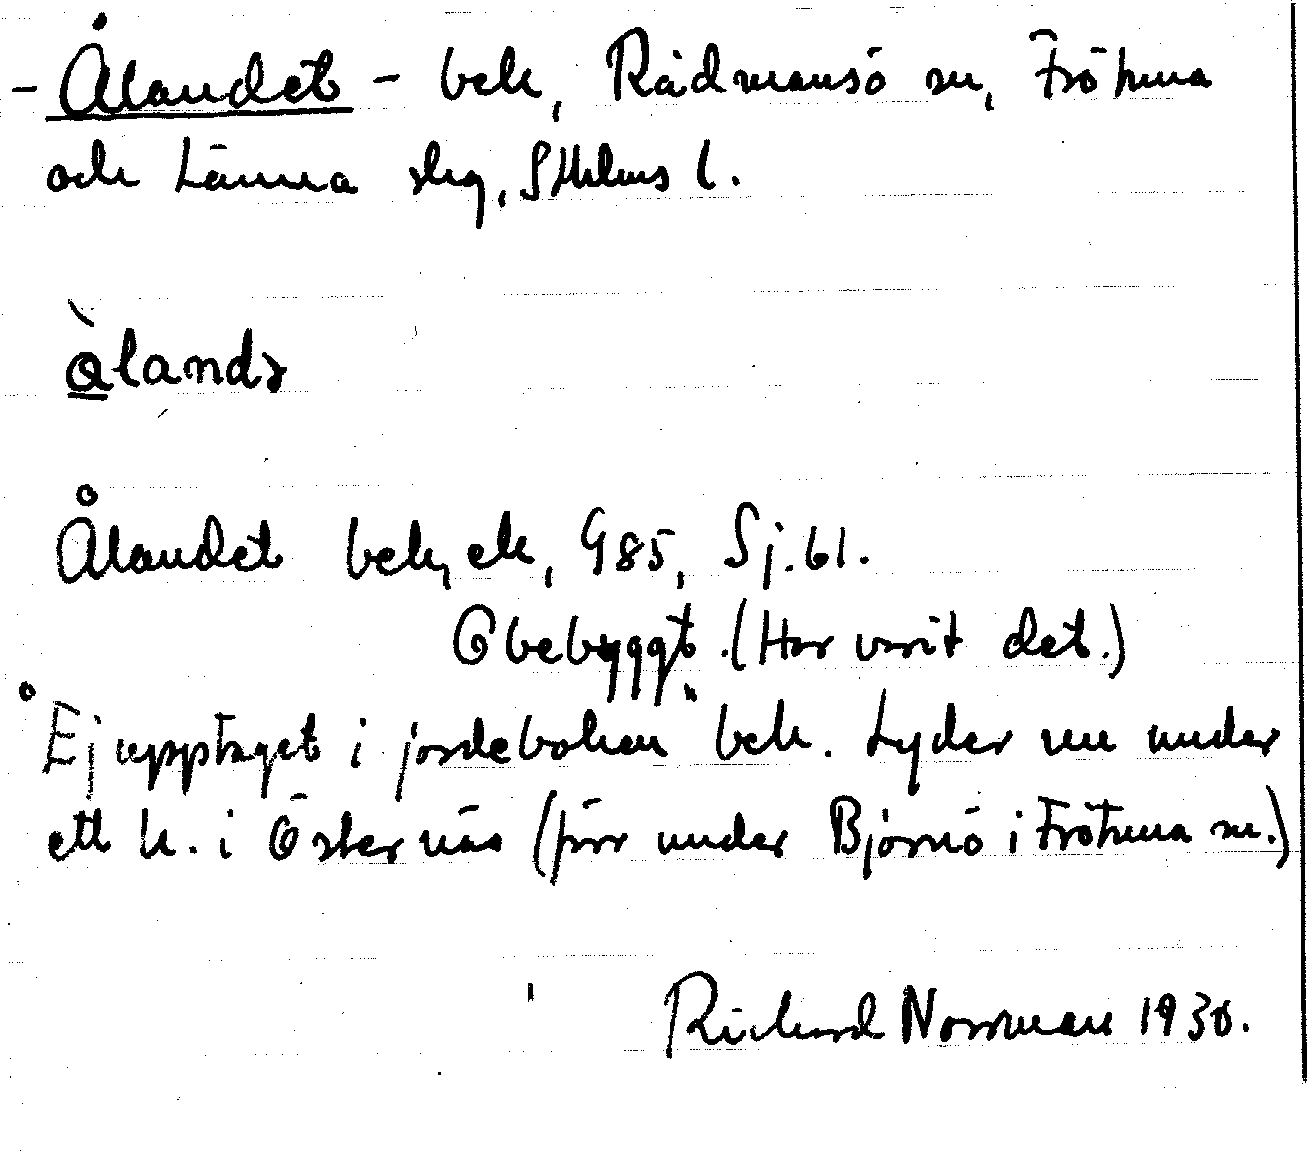 - Ålandet - bek, Rådmansö sn, Frötuna
och Länna skg, Sthlms l.
à̀landz
Ålandet bek, ek, G85, Sj. 61.
Obebyggt. (Har varit det.)
° Ej upptaget i jordeboken bek. Lyder nu under
ett h. i Östernäs (förr under Björnö i Frötuna sn.)
Richard Norrman 1930.